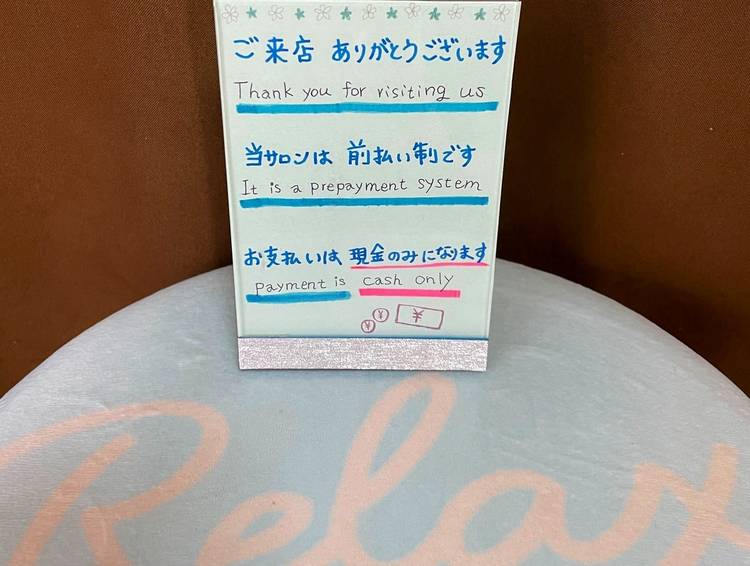 ご来店 ありがとうございます
Thank you for visiting us
当サロンは 前払い制です
It is a prepayment system
お支払いは 現金のみになります
payment is cash only
¥ ¥ ¥
Relax